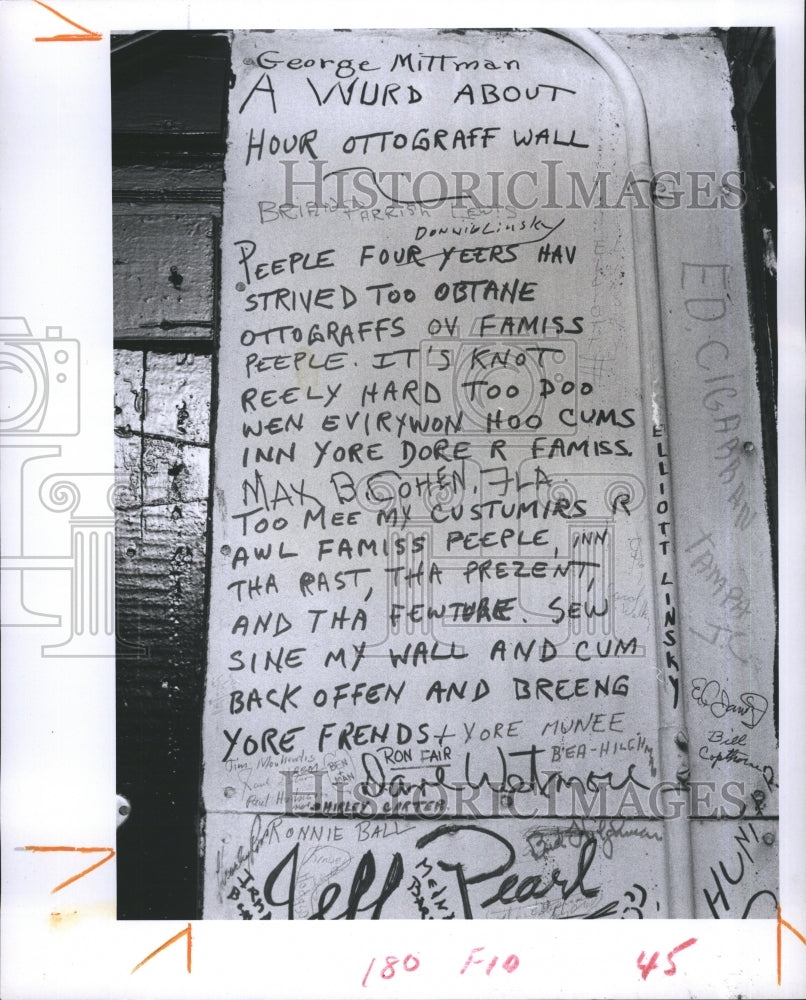 George Mittman
A WURD ABOUT
HOUR OTTOGRAFF WALL
HISTORICIMAGES
BRIAN PARRISH LEWIS
DONNIE LINSKY
PEEPLE FOUR YEERS HAV
STRIVED TOO OBTANE
OTTOGRAFFS OV FAMISS
PEEPLE. IT'S KNOT
REELY HARD TOO DOO
WEN EVIRYWON HOO CUMS
INN YORE DORE R FAMISS.
MAX B. COHEN, FLA.
TOO MEE MY CUSTUMIRS R
AWL FAMISS PEEPLE, INN
THA PAST, THA PREZENT,
AND THA FEWTURE. SEW
SINE MY WALL AND CUM
BACK OFFEN AND BREENG
YORE FRENDS + YORE MUNEE
ELLIOTT LINSKY
ED. CIGARMAN TAMPA
Bill
RON FAIR
BEN
JOAN
Jim
Paul
Dave Watmore
SHIRLEY CARTER
HISTORICIMAGES
RONNIE BALL
Jeff Pearl
HUNI
180 F10 45